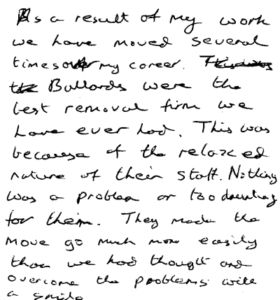 As a result of my work
we have moved several
times over my career.
Bullards were the
best removal firm we
have ever had. This was
because of the relaxed
nature of their staff. Nothing
was a problem or too daunting
for them. They made the
move go much more easily
than we had thought and
overcame the problems with
a smile